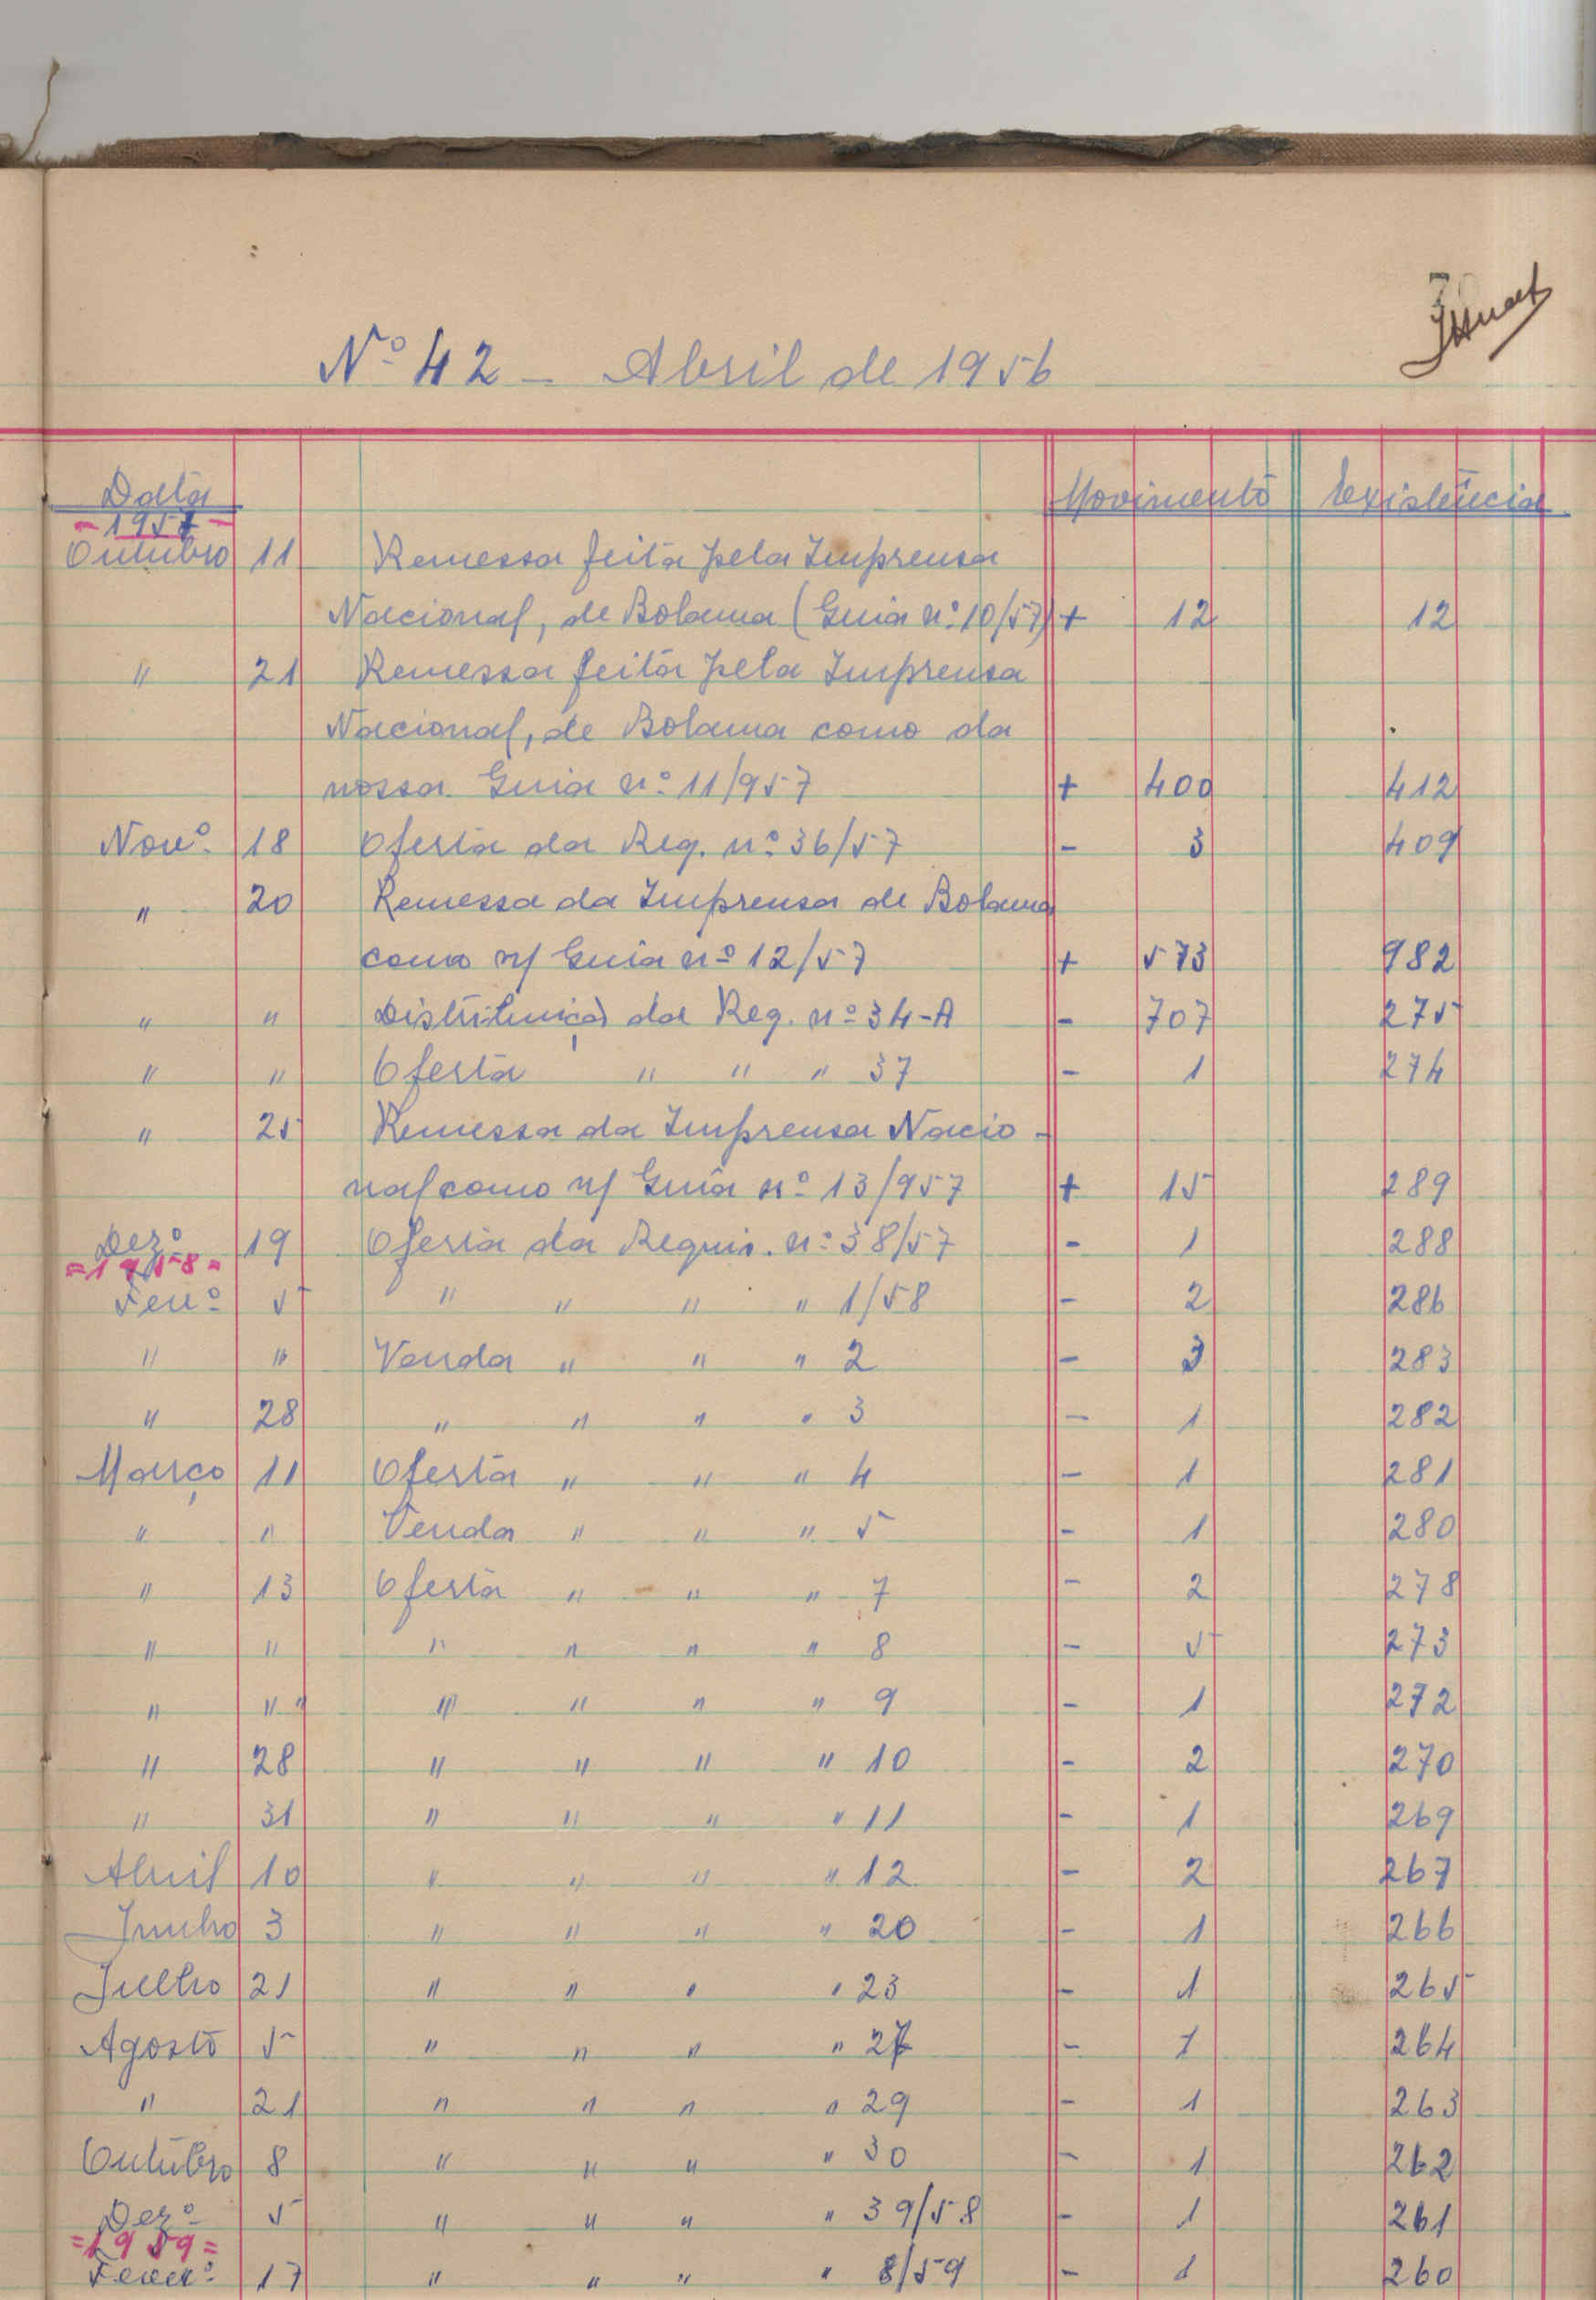 Nº 42 - Abril de 1956
Data Movimento Existência
- 1957 -
Outubro 11 Remessa feita pela Imprensa
Nacional, de Bolama (Guia nº 10/57) + 12 12
" 21 Remessa feita pela Imprensa
Nacional, de Bolama como da
nossa Guia nº 11/957 + 400 412
Novº 18 Oferta da Req. nº 36/57 - 3 409
" 20 Remessa da Imprensa de Bolama
como n/ Guia nº 12/57 + 573 982
" " Distribuição da Req. nº 34-A - 707 275
" " Oferta " " " 37 - 1 274
" 25 Remessa da Imprensa Nacio-
nal como n/ Guia nº 13/957 + 15 289
Dezº 19 Oferta da Requis. nº 38/57 - 1 288
= 1958 =
Fevº 5 " " " " 1/58 - 2 286
" " Venda " " " 2 - 3 283
" 28 " " " " 3 - 1 282
Março 11 Oferta " " " 4 - 1 281
" " Venda " " " 5 - 1 280
" 13 Oferta " " " 7 - 2 278
" " " " " " 8 - 5 273
" " " " " " " 9 - 1 272
" 28 " " " " 10 - 2 270
" 31 " " " " 11 - 1 269
Abril 10 " " " " 12 - 2 267
Junho 3 " " " " 20 - 1 266
Julho 21 " " " " 23 - 1 265
Agosto 5 " " " " 27 - 1 264
" 21 " " " " 29 - 1 263
Outubro 8 " " " " 30 - 1 262
Dezº 5 " " " " 39/58 - 1 261
= 1959 =
Feverº 17 " " " " 8/59 - 1 260